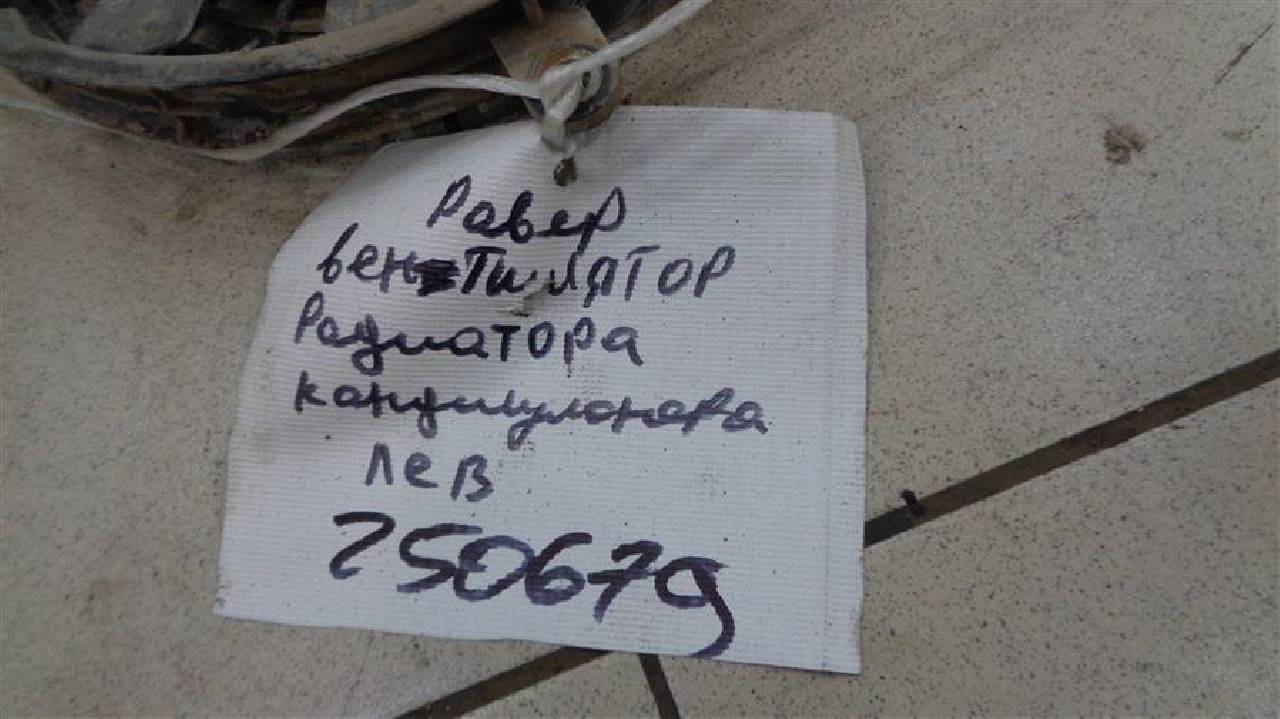 Равер
вентилятор
Радиатора
кандицуонера
лев
250679